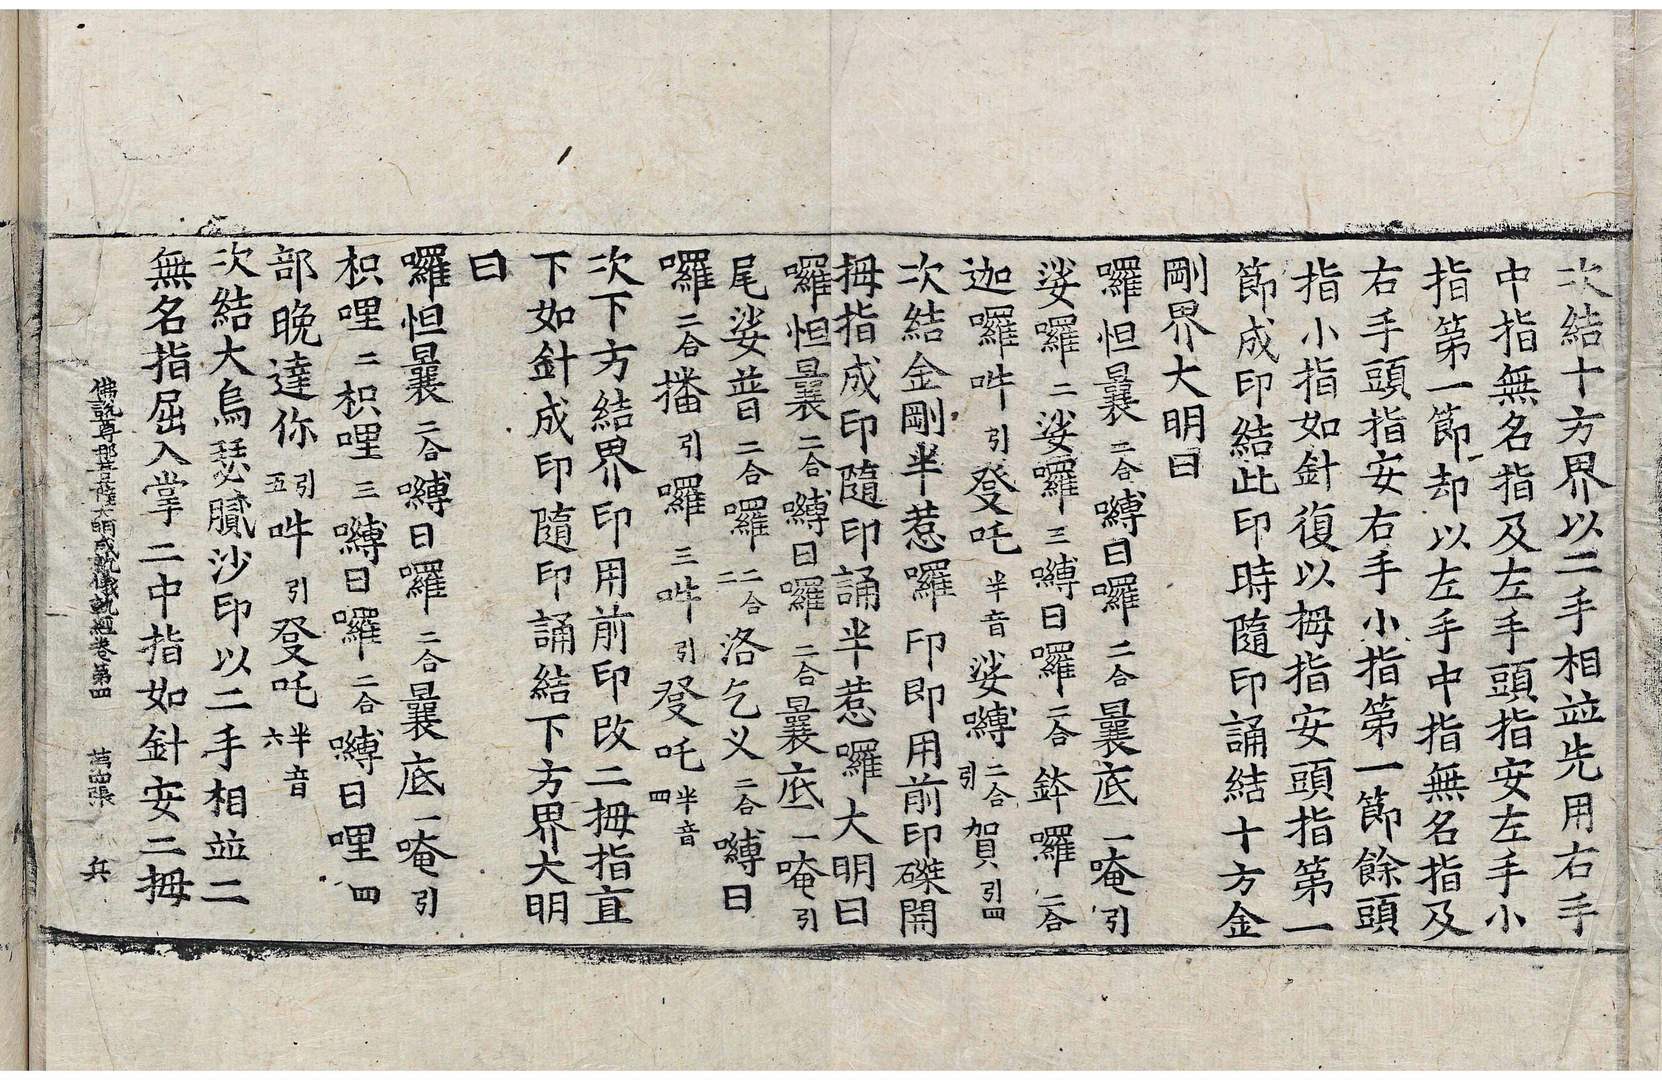 次結十方界以二手相並先用右手
中指無名指及左手頭指安左手小
指第一節却以左手中指無名指及
右手頭指安右手小指第一節餘頭
指小指如針復以拇指安頭指第一
節成印結此印時隨印誦結十方金
剛界大明曰
囉怛曩二合嚩日囉二合曩底一唵引
娑囉二娑囉三嚩日囉二合鉢囉二合
迦囉吽引發吒半音娑嚩二合引賀引四
次結金剛半惹囉印即用前印磔開
拇指成印隨印誦半惹囉大明曰
囉怛曩二合嚩日囉二合曩底一唵引
尾娑普二合囉二合二洛乞叉二合嚩日
囉二合播引囉三吽引發吒半音四
次下方結界印用前印改二拇指直
下如針成印隨印誦結下方界大明
曰
囉怛曩二合嚩日囉二合曩底一唵引
枳哩二枳哩三嚩日囉二合嚩日哩四
部晚達你引五吽引發吒半音六
次結大烏瑟膩沙印以二手相並二
無名指屈入掌二中指如針安二拇
佛說尊那菩薩大明成就儀軌經卷第四 第四張 兵